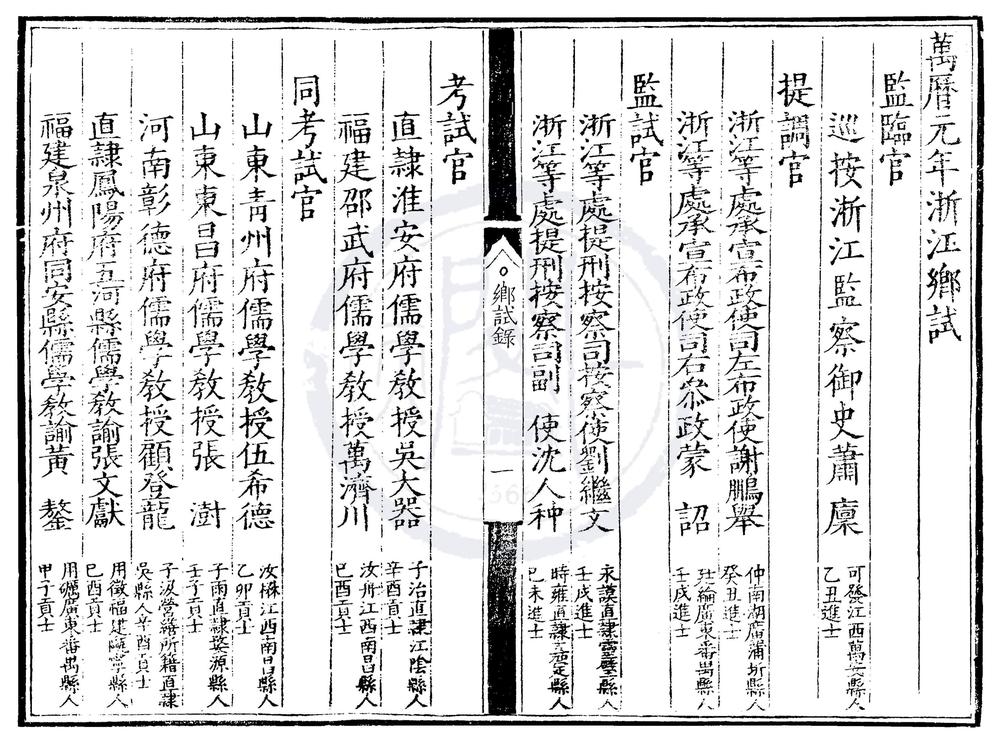 萬曆元年浙江鄉試
監臨官
巡按浙江監察御史蕭廩 可發江西萬安縣人乙丑進士
提調官
浙江等處承宣布政使司左布政使謝鵬舉 仲南湖廣蒲圻縣人癸丑進士
浙江等處承宣布政使司右叅政蒙詔 廷綸廣東番禺縣人壬戌進士
監試官
浙江等處提刑按察司按察使劉繼文 永謨直隸靈璧縣人壬戌進士
浙江等處提刑按察司副使沈人种 時雍直隸嘉定縣人己未進士
鄉試錄
一
考試官
直隸淮安府儒學教授吳大器 子治直隸江陰縣人辛酉貢士
福建邵武府儒學教授萬濟川 汝舟江西南昌縣人己酉貢士
同考試官
山東青州府儒學教授伍希德 汝楙江西南昌縣人乙卯貢士
山東東昌府儒學教授張澍 子雨直隸婺源縣人壬子貢士
河南彰德府儒學教授顧登龍 子汲營繕所籍直隸吳縣人辛酉貢士
直隸鳳陽府五河縣儒學教諭張文獻 用徵福建寧縣人己酉貢士
福建泉州府同安縣儒學教諭黃鏊 用礪廣東番禺縣人甲子貢士